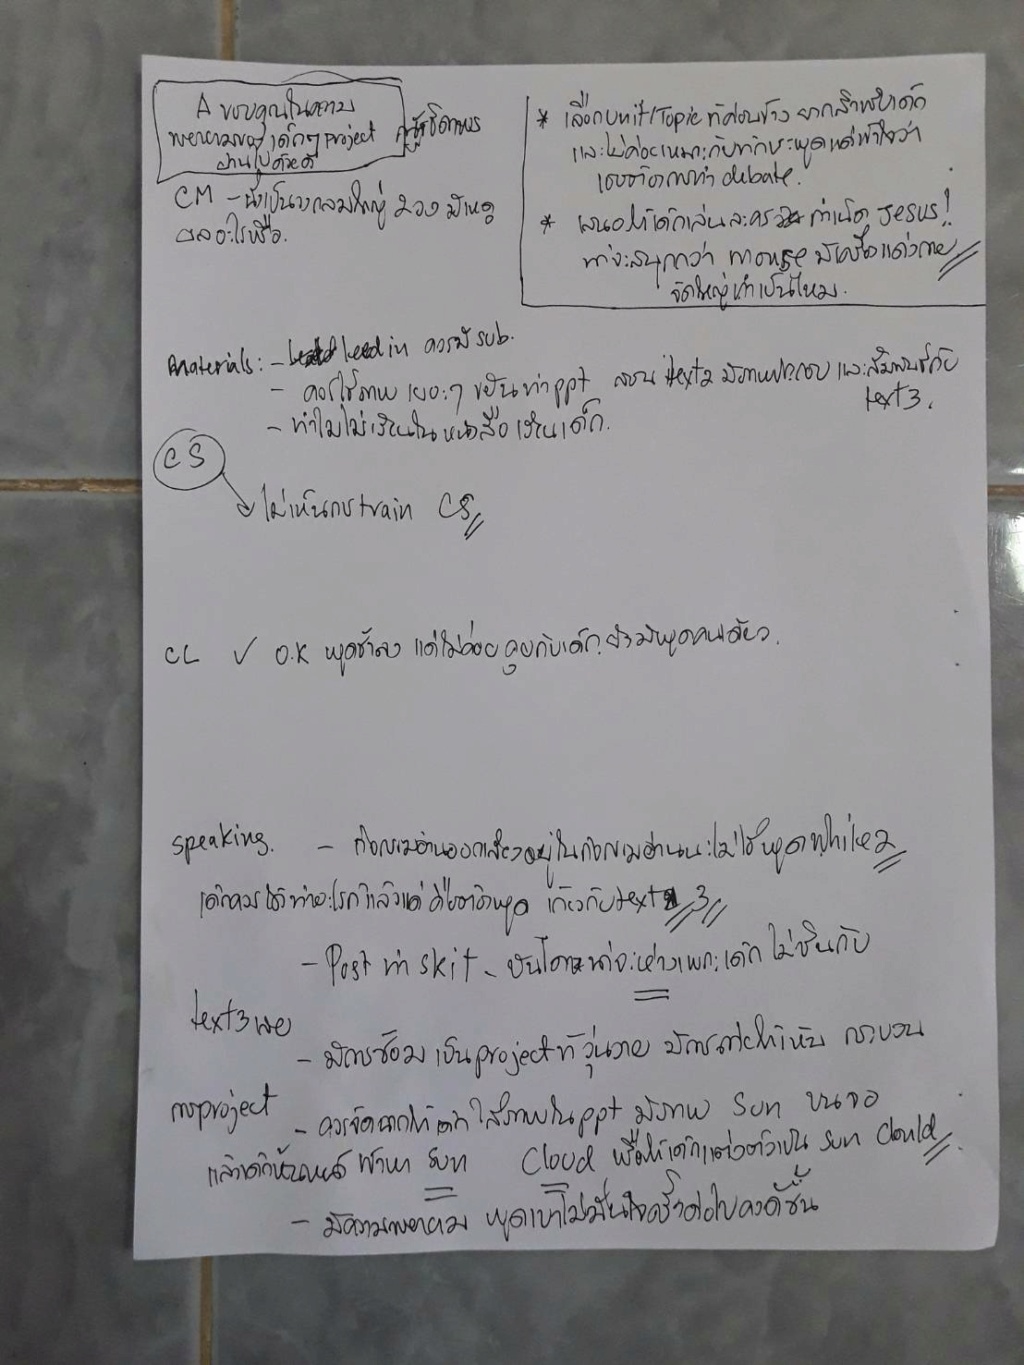 A ขอบคุณในความ
พยายามของเด็กๆ project
ผ่านไปด้วยดี
CM - นั่งเป็นวงกลมใหญ่ 2 วง มีเหตุ
ผลอะไรหรือ.
* เลือก unit/Topic ที่ค่อนข้าง ยากสำหรับเด็ก
และไม่ค่อยเหมาะกับทักษะพูด แต่เข้าใจว่า
debate.
* เสนอให้เด็กเล่นละคร กำเนิด Jesus!
น่าจะสนุกกว่า mouse มีเครื่องแต่งกาย
จัดใหญ่ทำเป็นไหม.
Materials: - lead in ควรมี sub.
- ควรใช้ภาพ เยอะๆ ขยันทำ ppt สอน text2 มีภาพประกอบ และสัมพันธ์กับ
text3.
- ทำไมไม่เรียนในหนังสือเรียนเด็ก.
CS
ไม่เห็นการ train CS
CL ✓ O.K พูดช้าลง แต่ไม่ค่อย คุยกับเด็ก. ยังมีพูดคนเดียว.
speaking. - กิจกรรมอ่านออกเสียงอยู่ในกิจกรรมอ่านนะไม่ใช่พูด While2
เด็กควรได้ทำอะไรก็แล้วแต่ เกี่ยวกับ text 3
- Post ทำ skit - เด็ก ไม่ชินกับ
text3 เลย
- มีการซ้อม เป็น project ที่วุ่นวาย กระบวน
การ project - ควรจัดฉากให้เด็ก ใส่ภาพใน ppt มีภาพ Sun บนจอ
แล้วเด็กหันหน้า เข้าหา Sun Cloud หรือให้เด็กแต่งตัวเป็น Sun Clould
- มีความพยายาม